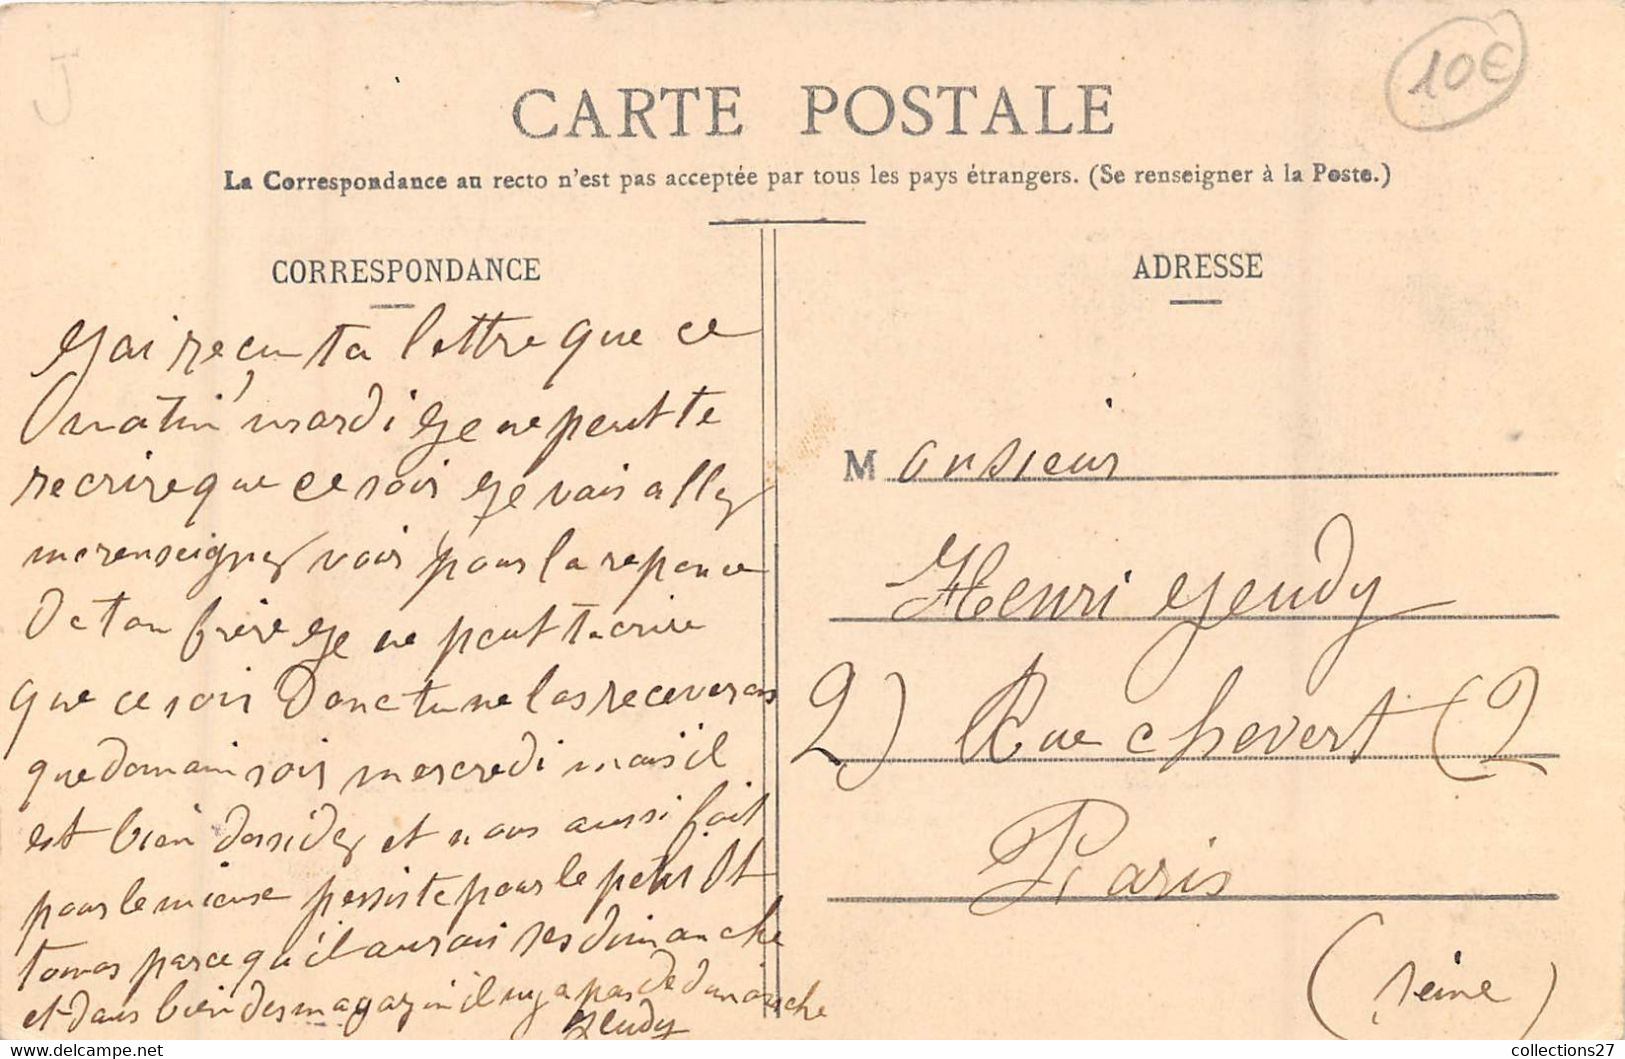 J
10€
CARTE POSTALE
La Correspondance au recto n'est pas acceptée par tous les pays étrangers. (Se renseigner à la Poste.)
CORRESPONDANCE
ADRESSE
Jai reçu ta lettre que ce
matin mardi Je ne peut te
recrire que ce soir Je vais aller
me renseigner voir pour la reponce
De ton frère Je ne peut tecrire
que ce soir Donc tu ne las receveras
que domain soir mercredi mais il
est bien dessider et nous aussi fait
pour le mieuse persiste pour le petit St
tomas parce qu'il aurais ses dimanche
et dans bien des magazin il ny a pas de dimanche
Jeudy
Monsieur
Henri Jeudy
2) Rue chevert (2
Paris
(Seine)
collections27